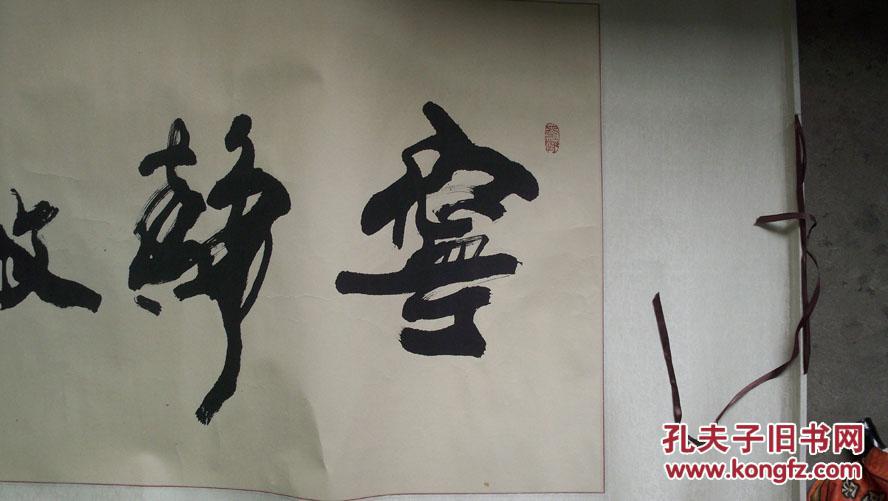 寧靜
孔夫子旧书网
www.kongfz.com